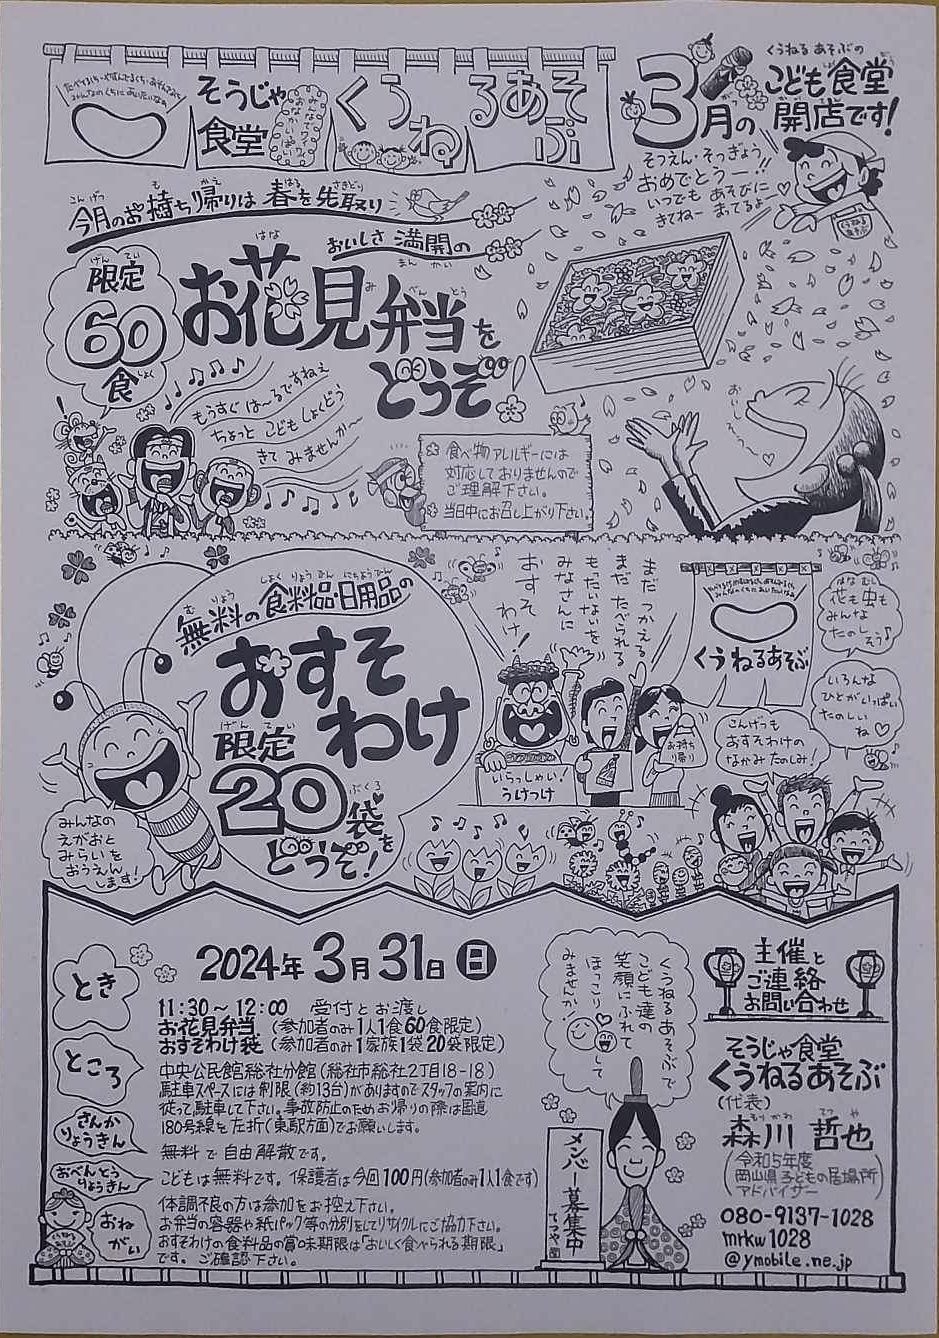 そうじゃ
食堂
くうねるあそぶ
3月の
くうねるあそぶの
こども食堂
開店です!
そつえん・そつぎょう!!
おめでとうー!
いつでもあそびに
きてねー まってるよ
今月のお持ち帰りは春を先取り
おいしさ満開の
限定
60
食
お花見弁当を
どうぞ!
もうすぐは〜るですねぇ
ちょっとこどもしょくどう
きてみませんか〜
食べ物アレルギーには
対応しておりませんので
ご理解下さい。
当日中にお召し上がり下さい。
おいしい〜
無料の食料品・日用品の
おすそ
わけ
限定
20袋を
どうぞ!
みんなの
えがおと
みらいを
おうえん
します!
まだつかえる
まだたべられる
もったいないを
みなさんに
おすそ
わけ!
いらっしゃい!
うけつけ
お持ち
帰り
くうねるあそぶ
花も虫も
みんな
たのしそう♪
いろんな
ひとがいっぱい
たのしい
ね♡
こんげつも
おすそわけの
なかみたのしみ!
とき
2024年3月31日(日)
11:30〜12:00 受付とお渡し
お花見弁当(参加者のみ1人1食60食限定)
おすそわけ袋(参加者のみ1家族1袋20袋限定)
ところ
中央公民館総社分館(総社市総社2丁目8-18)
駐車スペースには制限(約13台)がありますのでスタッフの案内に
従って駐車して下さい。事故防止のためお帰りの際は国道
180号線を左折(東駅方面)でお願いします。
さんか
りょうきん
無料で自由解散です。
おべんとう
りょうきん
こどもは無料です。保護者は今回100円(参加者のみ1人1食です)
おね
がい
体調不良の方は参加をお控え下さい。
お弁当の容器や紙パック等の分別をしてリサイクルにご協力下さい。
おすそわけの食料品の賞味期限は「おいしく食べられる期限」
です。ご確認下さい。
くうねるあそぶで
こども達の
笑顔にふれて
ほっこりして
みませんか!
メンバー募集中
主催と
ご連絡
お問い合わせ
そうじゃ食堂
くうねるあそぶ
(代表)
森川哲也
(令和5年度
岡山県子どもの居場所
アドバイザー)
080-9137-1028
mrkw1028
@ymobile.ne.jp